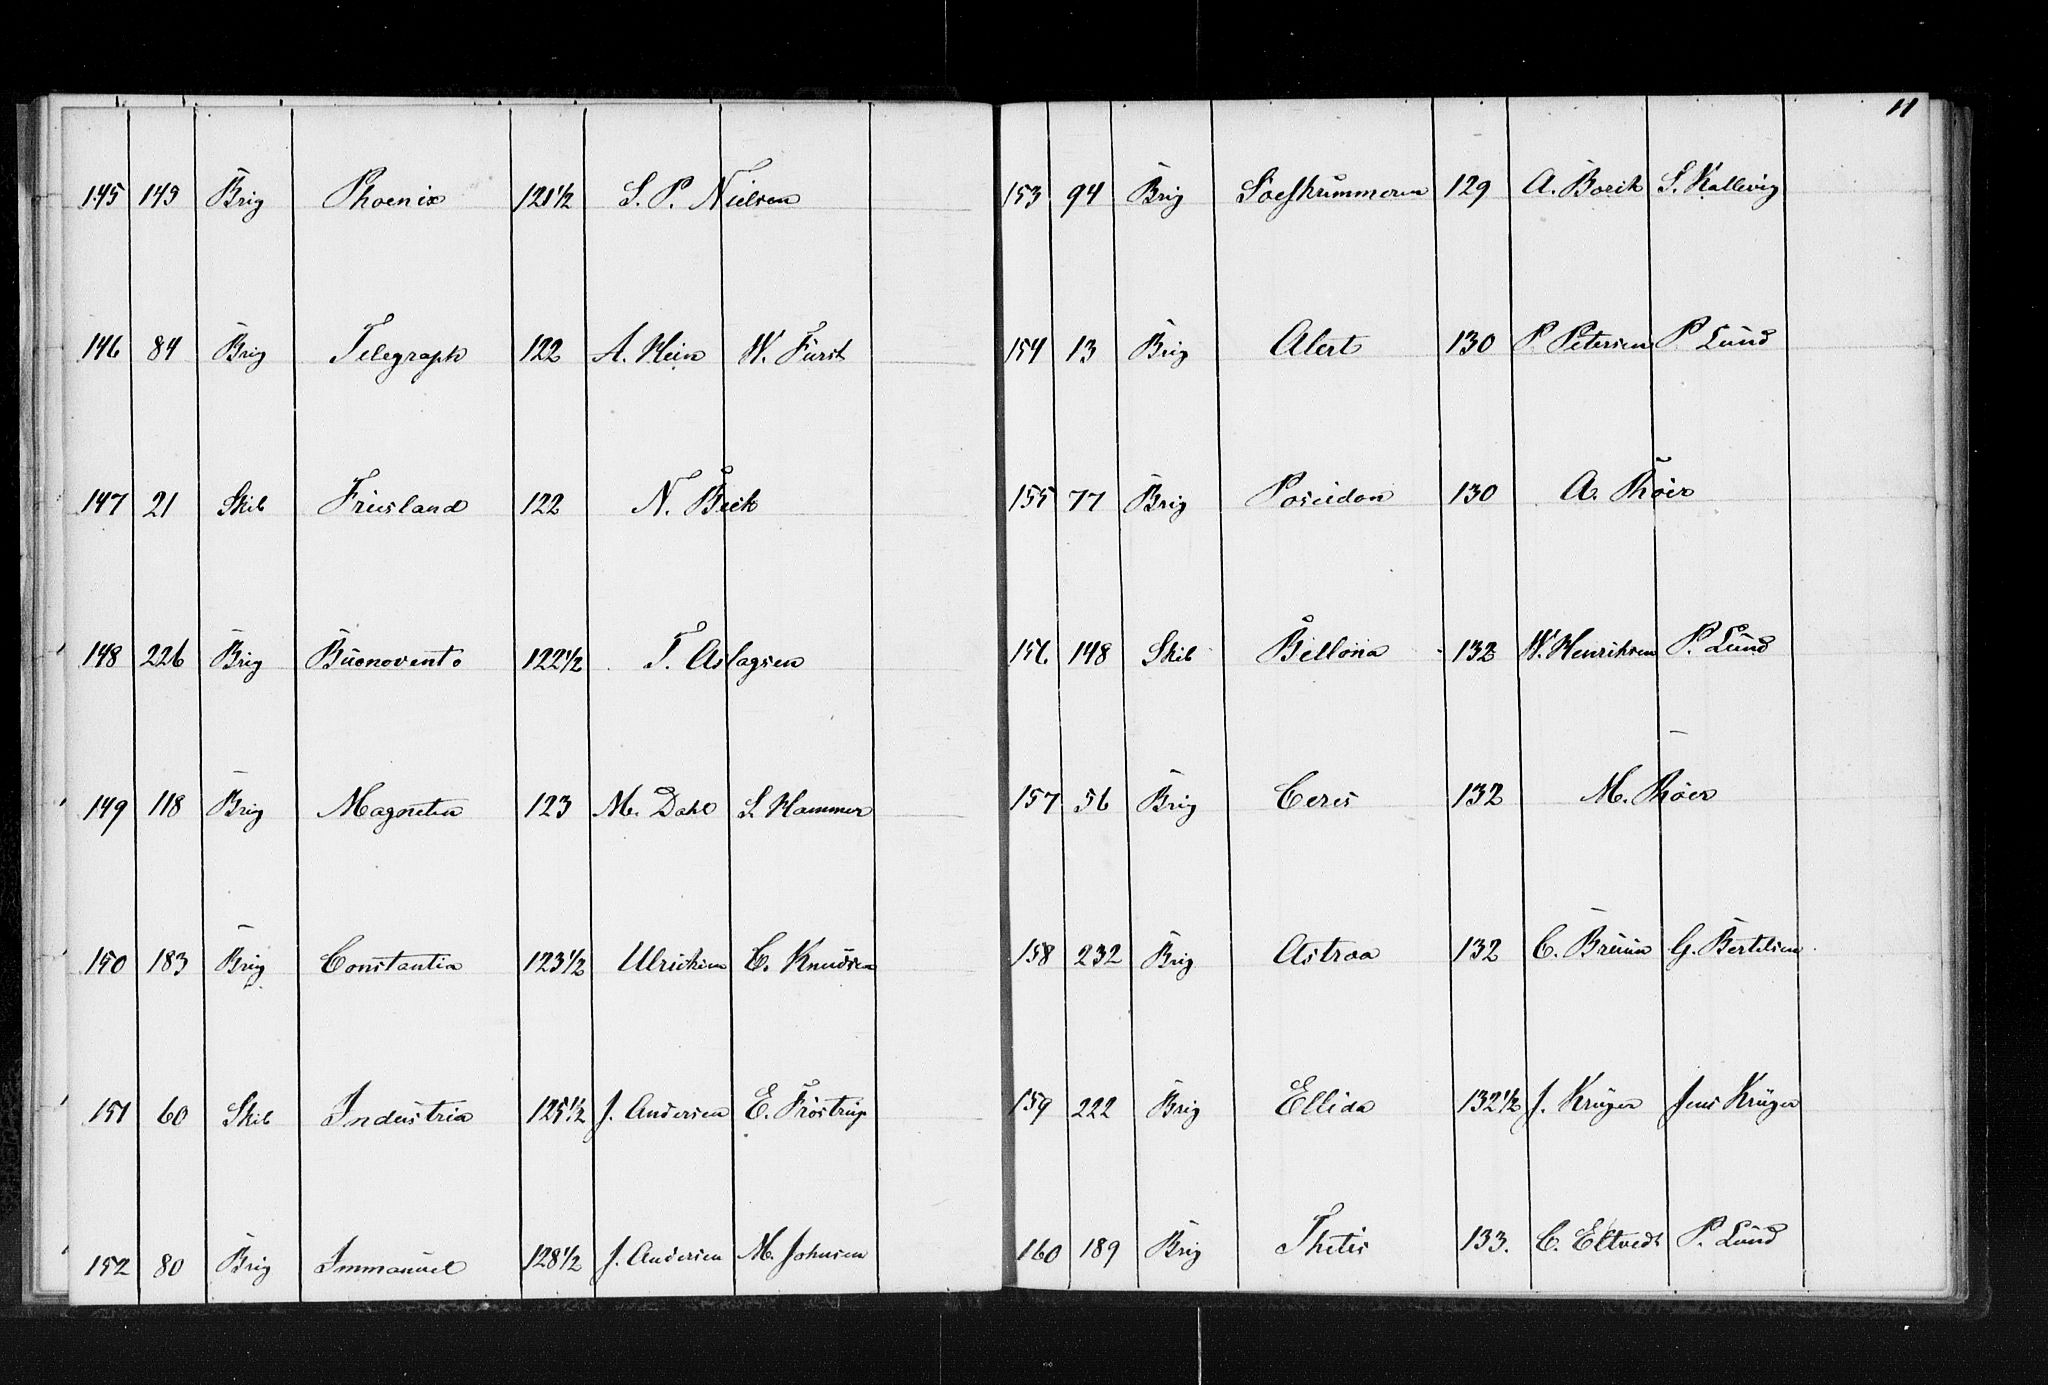 145 143 Brig Phoenix 121 1/2 S. P. Nielsen
146 84 Brig Telegraph 122 A. Hein W. Furst
147 21 Skib Friesland 122 N. Beck
148 226 Brig Buonovento 122 1/2 T. Aslagsen
149 118 Brig Magneten 123 M. Dahl L. Hammer
150 183 Brig Constantia 123 1/2 Ulrichsen C. Knudsen
151 60 Skib Industria 125 1/2 J. Andersen E. Fröstrup
152 80 Brig Immanuel 128 1/2 J. Andersen M. Johnsen
11
153 94 Brig 129 A. Borik S. Kallevig
154 13 Brig Alert 130 P. Petersen P. Lund
155 77 Brig Poseidon 130 A. Böer
156 148 Skib Bellona 132 W. Henriksen P. Lund
157 56 Brig Ceres 132 M. Böer
158 232 Brig Astraa 132 C. Bruun G. Bertelsen
159 222 Brig Ellida 132 1/2 J. Krüger Jens Krüger
160 189 Brig Thetis 133. C. Eltvedt P. Lund